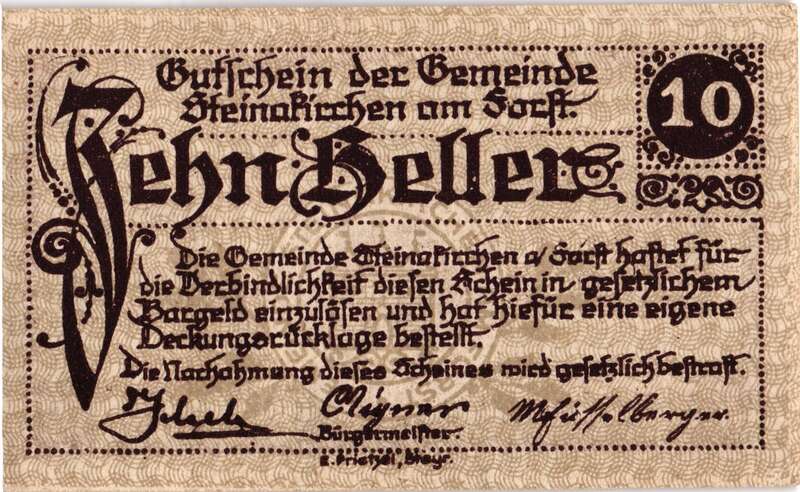 Gutschein der Gemeinde
Steinakirchen am Forst.
10
Zehn Heller
Die Gemeinde Steinakirchen a/Forst haftet für
die Verbindlichkeit diesen Schein in gesetzlichem
Bargeld einzulösen und hat hiefür eine eigene
Deckungsrücklage bestellt.
Die Nachahmung dieses Scheines wird gesetzlich bestraft.
Aigner
Bürgermeister.
E. Prietzel, Steyr.